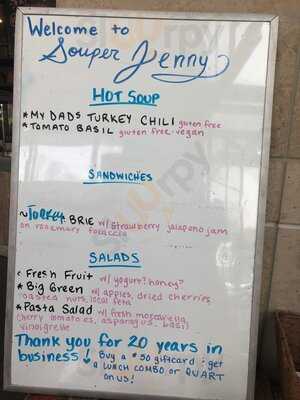 Welcome to
Souper Jenny
HOT SOUP
* MY DADS TURKEY CHILI gluten free
* TOMATO BASIL gluten free·vegan
SANDWICHES
~Turkey BRIE w/ strawberry jalapeno jam
on rosemary focaccia
SALADS
Fresh Fruit w/ yogurt? honey?
* Big Green w/ apples, dried cherries,
roasted nuts, local feta
* Pasta Salad w/ fresh mozzarella,
cherry tomatoes, asparagus, basil
vinaigrette
Thank you for 20 years in
business! Buy a $50 giftcard : get
a LUNCH COMBO or QUART
on US!